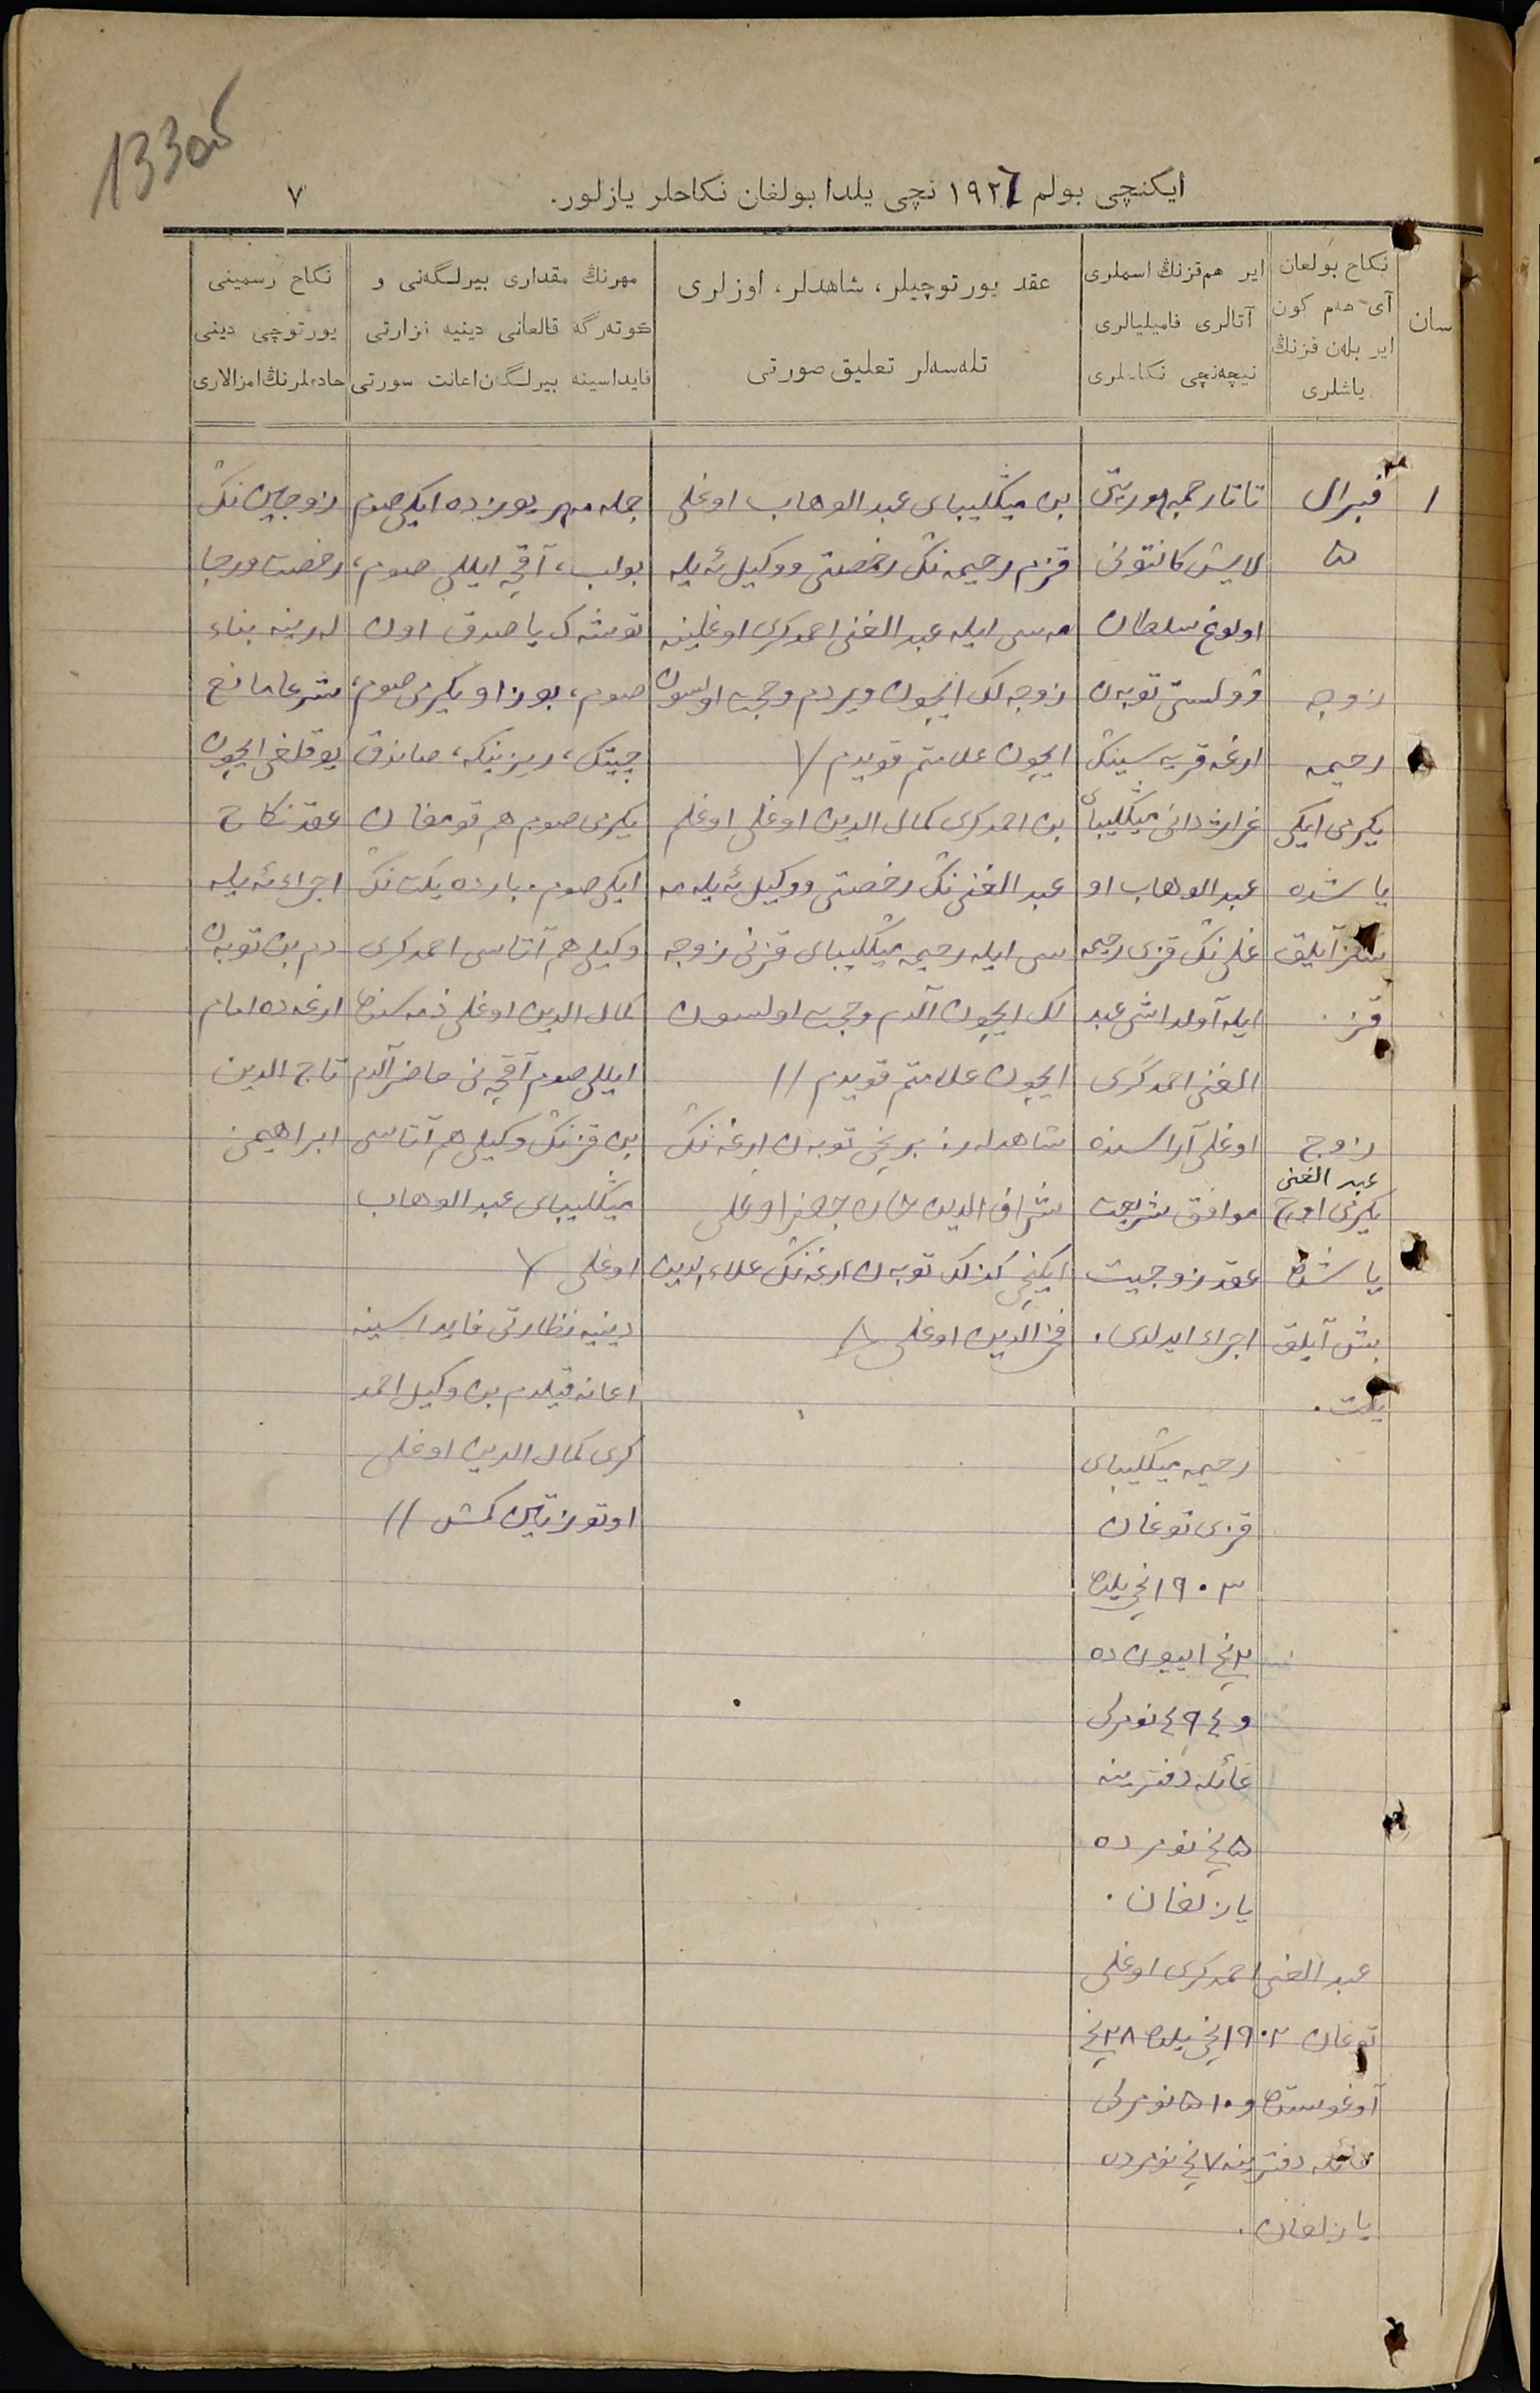 133об
ایکنچی بولم ١٩٢٦ نچی یلدا بولغان نکاحلر یازلور.
٧
سان
نکاح بولغان
آی هەم کون
ایر بلەن قزنڭ
یاشلری
ایر هم قزنڭ اسملری
آتالری فامیلیالری
نیچەنچی نکاحلری
عقد یورتوچیلر، شاهدلر، اوزلری
تلەسەلر تعلیق صورتی
مهرنڭ مقداری بیرلگەنی و
کوتەرگە قالغانی دینیه نزارتی
فایداسینه بیرلگەن اعانت سورتی
نکاح رسمینی
یورتوچی دینی
خادملرنڭ امزالاری
١
فبرال
٥
زوجه
رحیمه
یکرمی ایکی
یاشده
سکز آیلیق
قز.
زوج
عبد الغنی
یکرمی اوچ
یاشنده
بش آیلق
یکت.
تاتار جمهوریتی
لایش کانتونی
اولوغ سلطان
وولستی توبەن
ارغه قریه سینڭ
میڭلیبای
عبد الوهاب او
غلی نڭ قزی رحیمه
ایله آولداشی عبد
الغنی احمدکری
اوغلی آراسنده
موافق شریعت
عقد زوجیت
اجراء ایدلدی.
رحیمه میڭلیبای
قزی توغان
١٩٠٣ نچی یلده
٢ نچی اییون ده
و ٤٩٤ نومرلی
عائله دفترینه
٥ نچی نومرده
یازلغان.
عبد الغنی احمدکری اوغلی
توغان ١٩٠٢ نچی یلده ٢٨ نچی
آوغوستده و ٥١٠ نومرلی
عائله دفترینه ٧ نچی نومرده
یازلغان.
بن میڭلیبای عبد الوهاب اوغلی
قزم رحیمه نڭ رخصتی و وکیل ئەیلە
مەسی ایله عبد الغنی احمدکری اوغلینه
زوجه لک ایچون ویردم وحجت اولسون
ایچون علامتم قویدم //
بن احمدکری کمال الدین اوغلی اوغلم
عبد الغنی نڭ رخصتی و وکیل ئەیلە مە
سی ایله رحیمه میڭلیبای قزنی زوجه
لک ایچون آلدم وحجت اولسون
ایچون علامتم قویدم //
شاهدلەر: برنچی توبەن ارغه نڭ
شراف الدین خان جعفر اوغلی
ایکنچی کذلک توبەن ارغه نڭ علاء الدین
فخر الدین اوغلی //
جمله مهر یوز ده ایکی صوم
بولب، آقچه ایللی صوم،
توشەک یاصدق اون
صوم، بوزاو یکرمی صوم،
چیتک، ریزینکه، صاندق
یکرمی صوم هم قومغان
ایکی صوم. بارده یکت نڭ
وکیلی هم آتاسی احمدکری
کمال الدین اوغلی ذمه سنده
ایللی صوم آقچه نی حاضر آلدم
بن قزنڭ وکیلی هم آتاسی
میڭلیبای عبد الوهاب
اوغلی //
دینیه نظارتی فایداسینه
اعانه قیلدم بن وکیل احمد
کری کمال الدین اوغلی
اوتوز تین کمش //
زوجین نڭ
رخصت و رجا
لەرینه بناء
شرعا مانع
یوقلغی ایچون
عقد نکاح
اجراء ئەیلە
دم بن توبەن
ارغه ده امام
تاج الدین
ابراهیمی